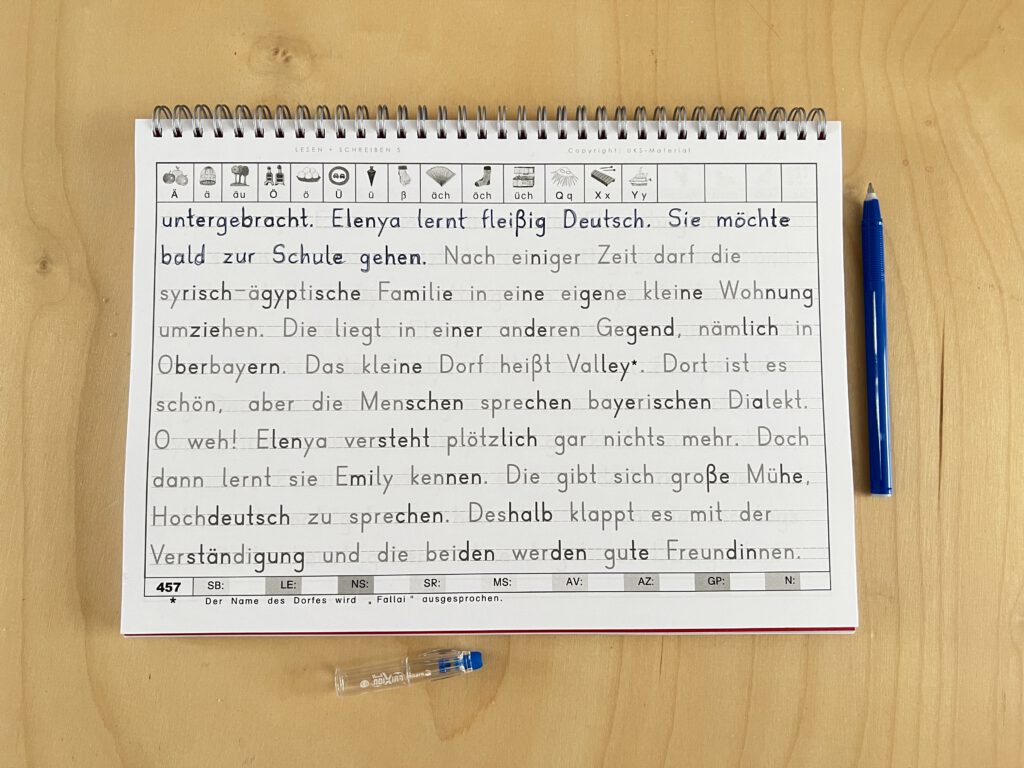 LESEN + SCHREIBEN 5 Copyright: UKS-Material
Ä ä äu Ö ö Ü ü ß äch öch üch Qq Xx Yy
untergebracht. Elenya lernt fleißig Deutsch. Sie möchte
bald zur Schule gehen. Nach einiger Zeit darf die
syrisch-ägyptische Familie in eine eigene kleine Wohnung
umziehen. Die liegt in einer anderen Gegend, nämlich in
Oberbayern. Das kleine Dorf heißt Valley*. Dort ist es
schön, aber die Menschen sprechen bayerischen Dialekt.
O weh! Elenya versteht plötzlich gar nichts mehr. Doch
dann lernt sie Emily kennen. Die gibt sich große Mühe,
Hochdeutsch zu sprechen. Deshalb klappt es mit der
Verständigung und die beiden werden gute Freundinnen.
457 SB: LE: NS: SR: MS: AV: AZ: GP: N:
* Der Name des Dorfes wird „Fallai" ausgesprochen.
FRIXION